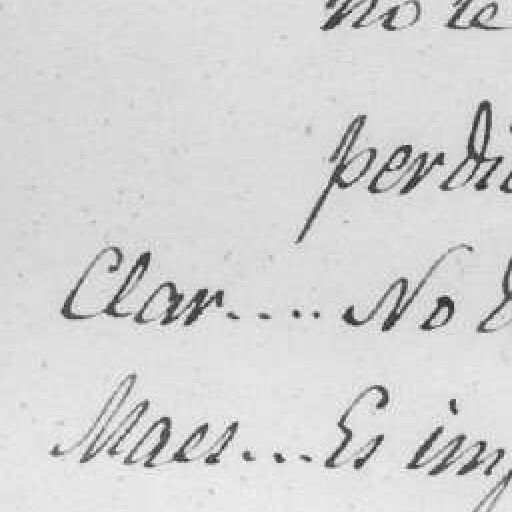 no te
perdi
Clar..... No
Maes.... Es imp